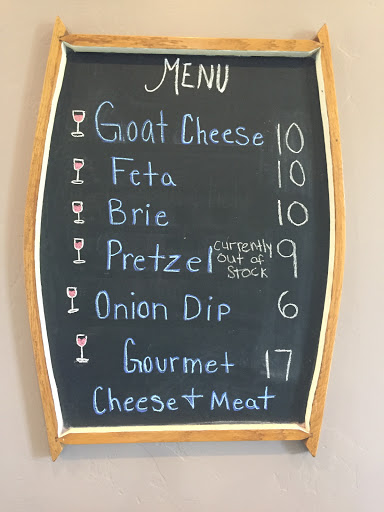 MENU
Goat Cheese 10
Feta 10
Brie 10
Pretzel currently out of stock 9
Onion Dip 6
Gourmet 17
Cheese + Meat